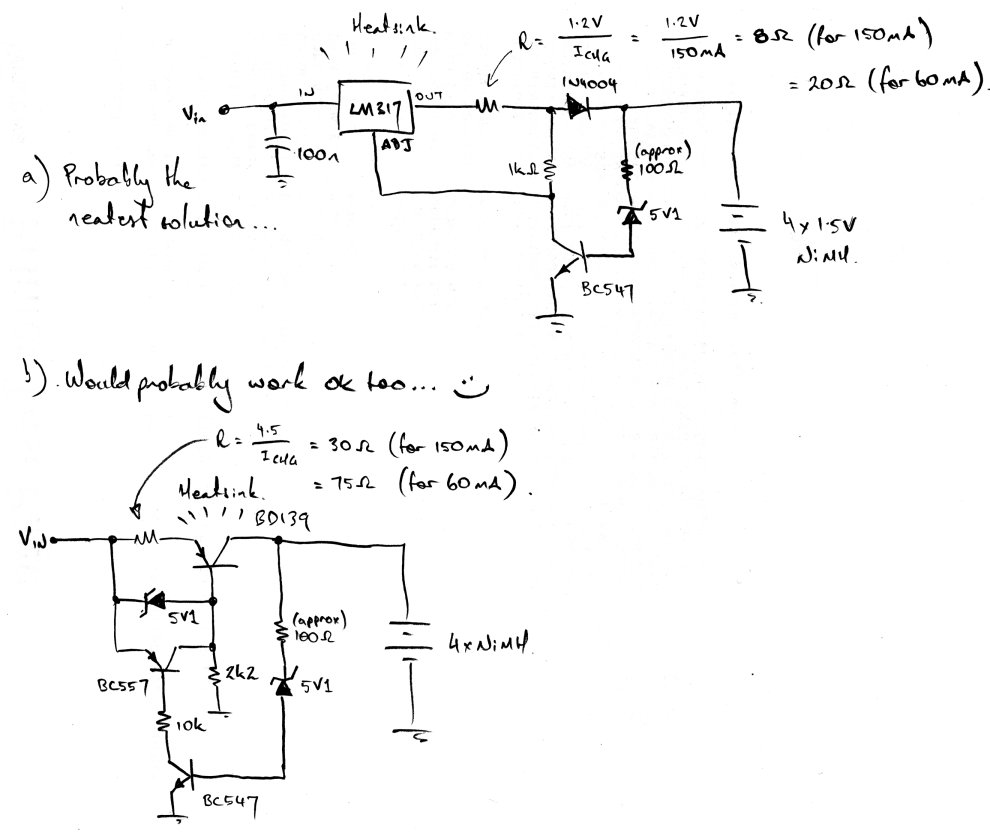 Heatsink.
R = 1.2V / I CHG = 1.2V / 150mA = 8Ω (for 150mA)
= 20Ω (for 60mA).
1N4004
IN
LM317
OUT
ADJ
Vin
100n
1kΩ
(approx)
100Ω
5V1
BC547
4 x 1.5V
NiMH.
a) Probably the
neatest solution...
b). Would probably work ok too... :)
R = 4.5 / I CHG = 30Ω (for 150mA)
= 75Ω (for 60mA).
Heatsink.
BD139
VIN
5V1
(approx)
100Ω
4xNiMH.
BC557
2k2
5V1
10k
BC547